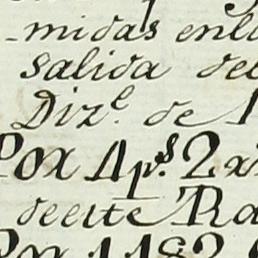 midas enla
salida del
Diz.e de 1
Por 4 p.s 2 r
deeste Ra
Por 1182